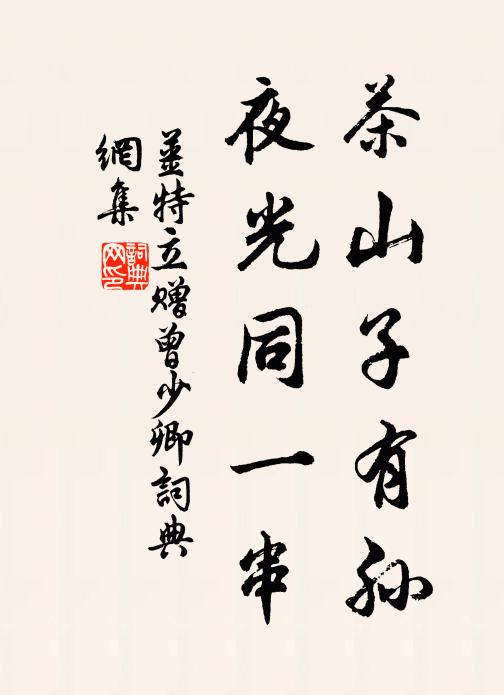 茶山子有孙
夜光同一串
姜特立赠曾少卿詞典
網集
詞典网印